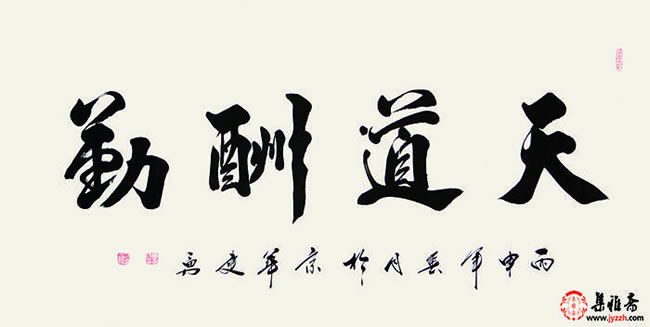 天道酬勤
丙申年春月於京華建勇
集雅斋
www.jyzzh.com